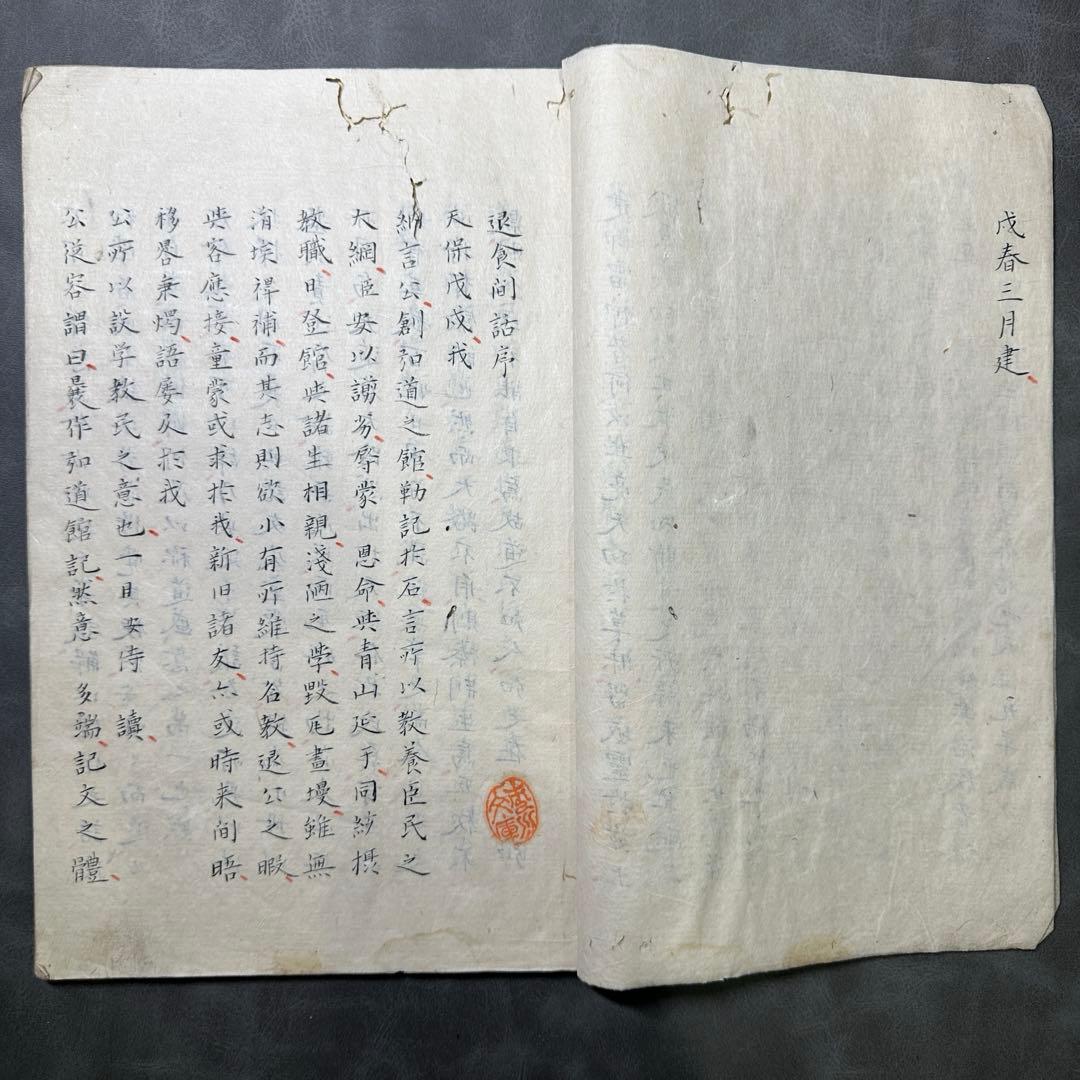 戊春三月建
退食间話序
天保戊戌我
納言公創弘道之館勒記於石言所以教養臣民之
大綱臣安以謭劣辱蒙 恩命与青山延于同紗摂
教職日登館与諸生相親淺陋之學毀瓦畫墁雖無
涓埃裨補而其志則欲小有所維持名教退公之暇
与客應接童蒙或求於我新旧諸友亦或時来间晤
移晷秉燭語屡及於我
公所以設学教民之意也一日安侍 讀
公從容謂曰曩作弘道館記然意多端記文之體